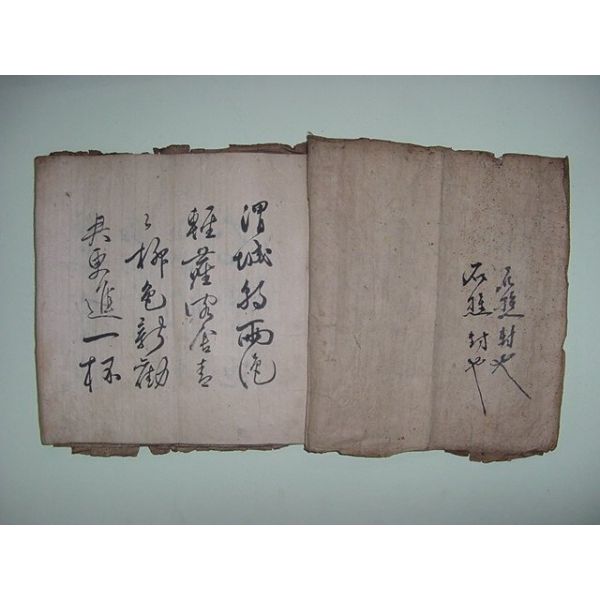 石 封也
石 封也
渭城朝雨浥
輕塵客舍青
〻柳色新勸
君更進一杯